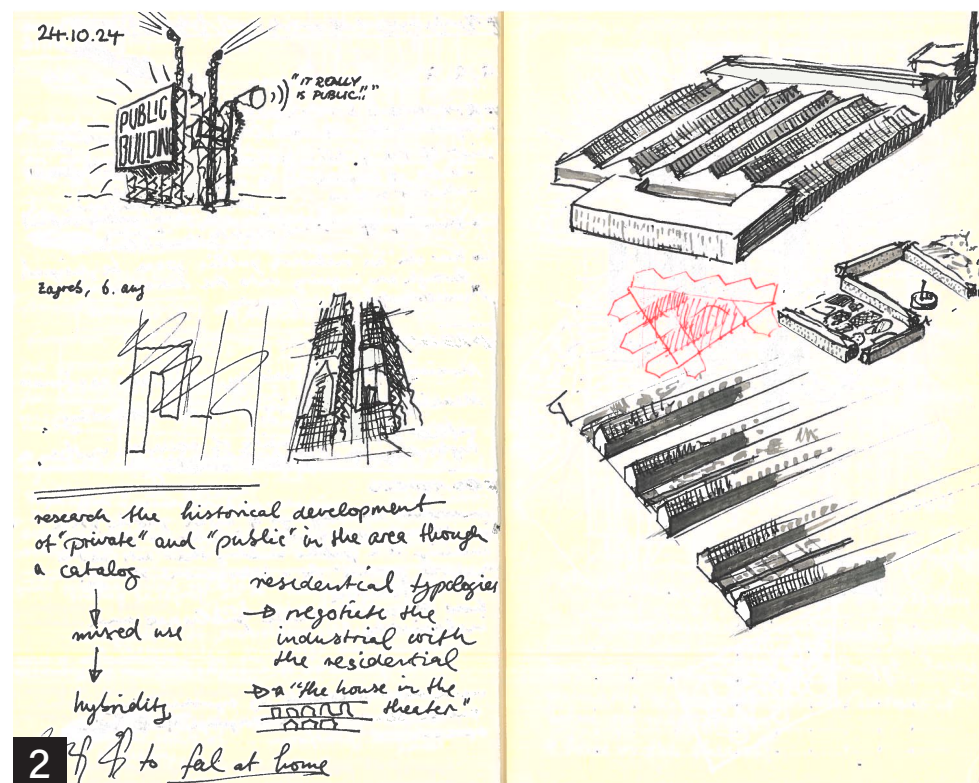 24.10.24
PUBLIC
BUILDING
"IT REALLY
IS PUBLIC!!"
Zagreb, 6. aug
research the historical development
of "private" and "public" in the area though
a catalog
mixed use
hybridity
residential typologies
→ negotiate the
industrial with
the residential
→ a "the house in the
theater"
to feel at home
2